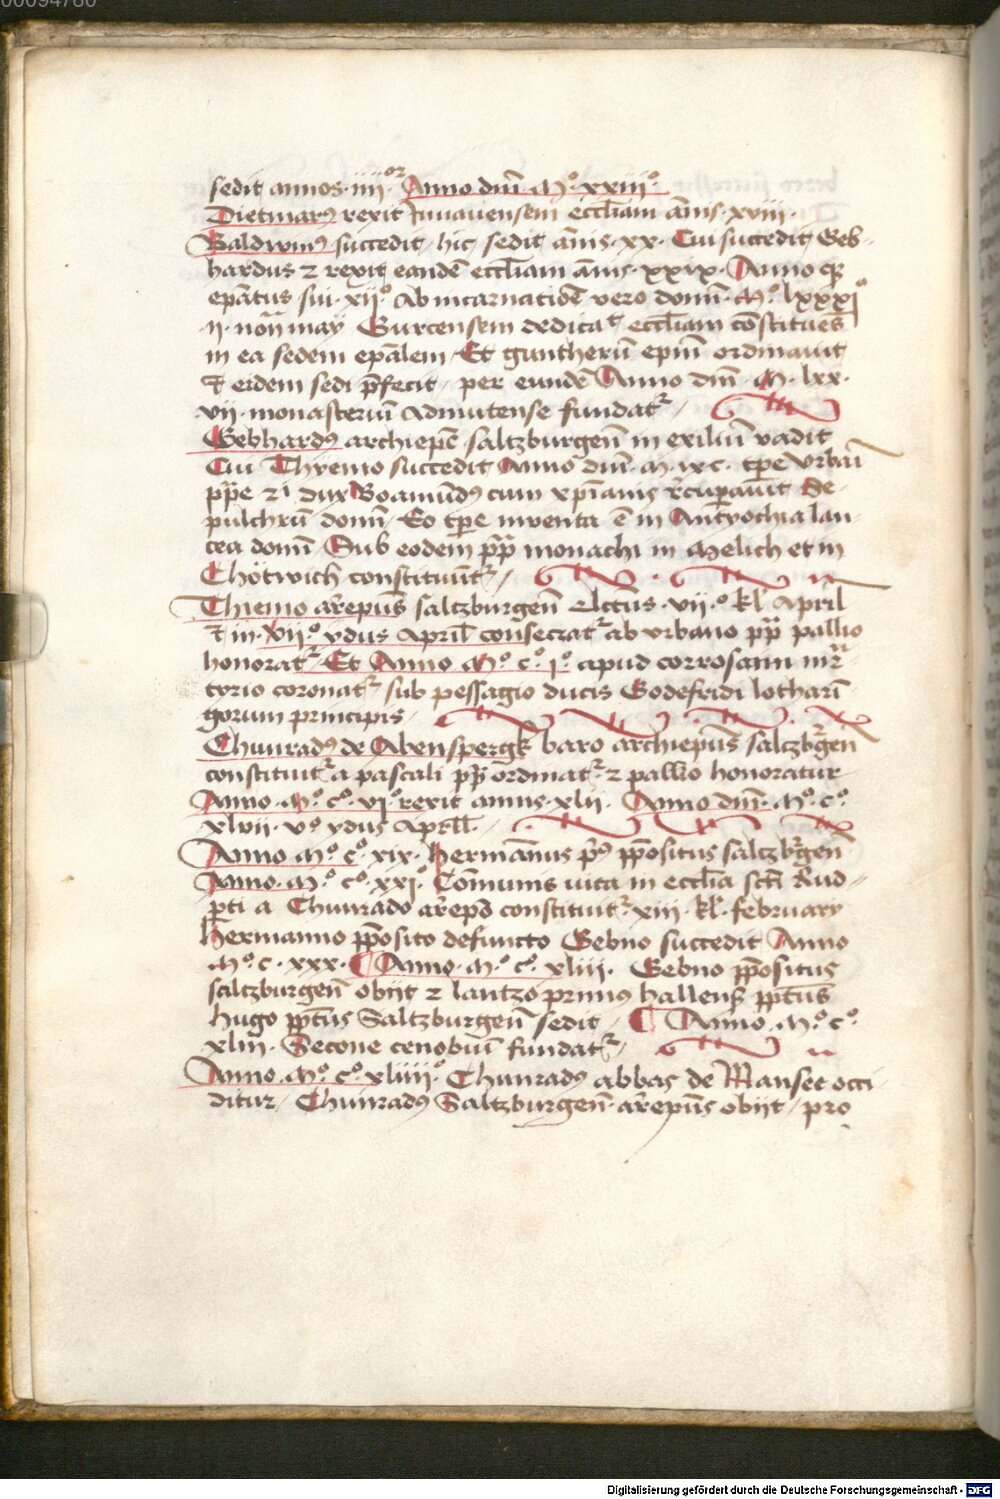 00094780
sedit annos · iiii^or · Anno dm̄ · M° · xxiii° ·
Dietmarꝰ rexit Iuuauensem eccl̄iam ān̄is · xviii ·
Baldwinꝰ succedit · hic sedit ān̄is · xx · Cui succedit Geb-
hardus ⁊ rexit eandē eccl̄iam ān̄is · xxix · Anno qꝫ
ep̄atus sui · xii° · Ab incarnatiōe vero domī · M° · lxxxi°
ij · non̄ may Gurcensem dedicat eccl̄iam cōstituēs
in ea sedem ep̄alem / Et guntherū ep̄m ordinauit
⁊ eidem sedi p̄fecit / per eundē Anno dm̄ · M · lxx ·
vii · monasteriū Admutense fundatꝛ /
Gebhardꝰ archiep̄c saltzburgen̄ in exiliū vadit
Cui Thyemo succedit Anno dm̄ · M · xc · tp̄e Vrbani
pp̄e ⁊ dux Boamūdꝰ cum xp̄ianis r̄cup̄auit Se-
pulchrū domī / Eo tp̄e inventa ē in Antyochia lan-
cea domī / Sub eodem pp̄ monachi in Melich et in
Chötwich constituūtꝛ /
Thiemo ar̄ep̄us saltzburgen̄ Elctūs · vii · ° kl̄ April̄
⁊ in · vii · ° ydus April̄ consecratꝛ ab vrbano pp̄ pallio
honoratꝛ · Et Anno M° · c° · i° · apud corrosaim mr̄-
tyrio coronatꝛ / sub pessagio ducis Godefridi lotharī-
gorum principis /
Chunradꝰ de Abenspergk baro archiep̄us saltzbꝛgen̄
constituitꝛ a pascali pp̄ ordinatꝛ · ⁊ pallio honoratur
Anno · M° · c° · vi° rexit annis · xlii · Anno dm̄ · M° · c° ·
xlvii · v° ydus April̄ ·
Anno M° · c° · xix · hermānus pꝰ pp̄ositus saltzbꝛgen̄
Anno · M° · c° · xxi° · Com̄unis vita in eccl̄ia sct̄i Rud-
ꝑti a Chunrado ar̄ep̄o constituitꝛ · xiii · kl̄ · february
hermanno pp̄osito defuncto Gebno succedit Anno
M° · c · xxx · ¶ Anno · M° · c° · xliii · Gebno pp̄ositus
saltzburgen̄ obijt ⁊ lantzo primꝰ hallens̄ pp̄tūs
hugo pp̄tūs Saltzburgen̄ sedit / ¶ Anno · M° · c° ·
xliii · Secone cenobiū fundatꝛ /
Anno · M° · c° · xliiii° · Chunradꝰ abbas de Mansee occi-
ditur / Chunradꝰ Saltzburgen̄ · ar̄ep̄us obijt / pro
Digitalisierung gefördert durch die Deutsche Forschungsgemeinschaft - DFG